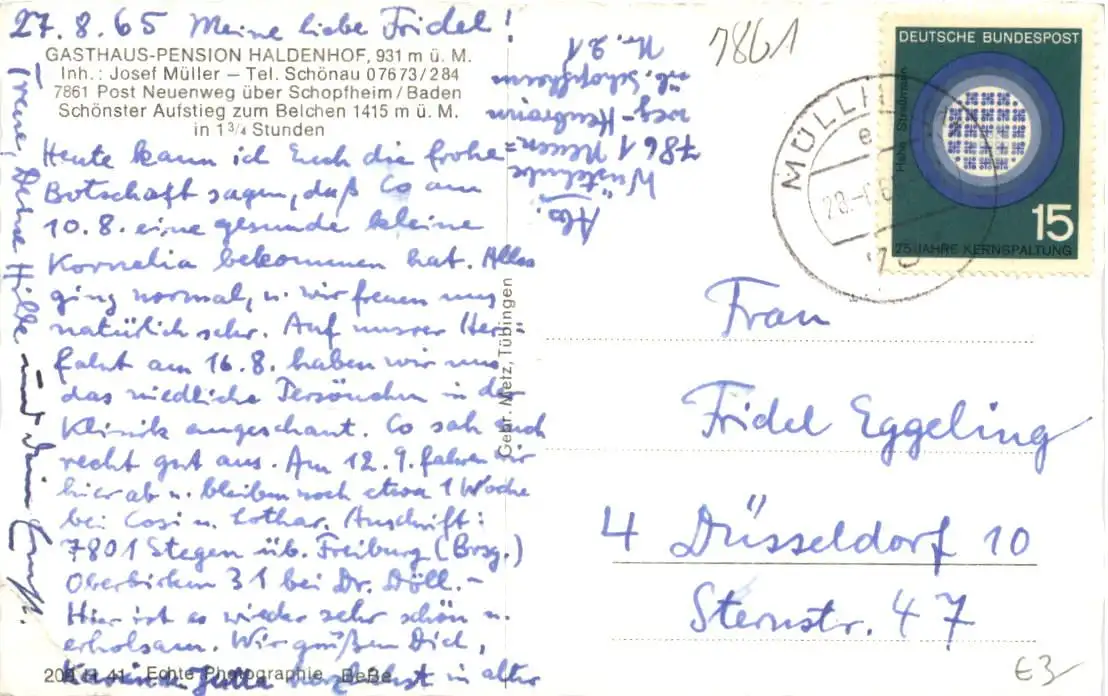 27.8.65 Meine liebe Fridel!
GASTHAUS-PENSION HALDENHOF, 931 m ü. M.
Inh.: Josef Müller – Tel. Schönau 07673/284
7861 Post Neuenweg über Schopfheim/Baden
Schönster Aufstieg zum Belchen 1415 m ü. M.
in 1 3/4 Stunden
Heute kann ich Euch die frohe
Botschaft sagen, daß Co am
10.8. eine gesunde kleine
Kornelia bekommen hat. Alles
ging normal, u. wir freuen uns
natürlich sehr. Auf unsrer Her=
fahrt am 16.8. haben wir uns
das niedliche Persönchen in der
Klinik angeschaut. Co sah auch
recht gut aus. Am 12.9. fahren wir
hier ab u. bleiben noch etwa 1 Woche
bei Cosi u. Lothar. Anschrift:
7801 Stegen üb. Freiburg (Brsg.)
Oberbirken 31 bei Dr. Döll.–
Hier ist es wieder sehr schön u.
erholsam. Wir grüßen Dich,
herzlichst in alter
Treue, Deine Hilde und Dein
209 H 41 Echte Photographie BeBe
Gebr. Metz, Tübingen
Abs.
7861 Neuen=
weg-
üb. Schopfheim
Nr. 21
7861
DEUTSCHE BUNDESPOST
Hahn Straßmann
15
25 JAHRE KERNSPALTUNG
MÜLLH
e
Frau
Fridel Eggeling
4 Düsseldorf 10
Sternstr. 47
€3